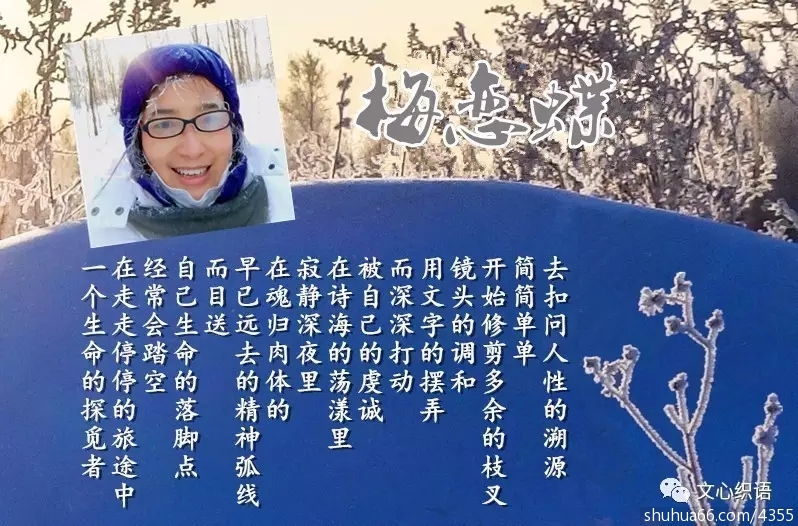 梅恋蝶
一个生命的探觅者
在走走停停的旅途中
经常会踏空
自己生命的落脚点
而目送
早已远去的精神弧线
在魂归肉体的
寂静深夜里
在诗海的荡漾里
被自己的虔诚
而深深打动
用文字的摆弄
镜头的调和
开始修剪多余的枝叉
简简单单
去扣问人性的溯源
文心织语
shuhua66.com/4355